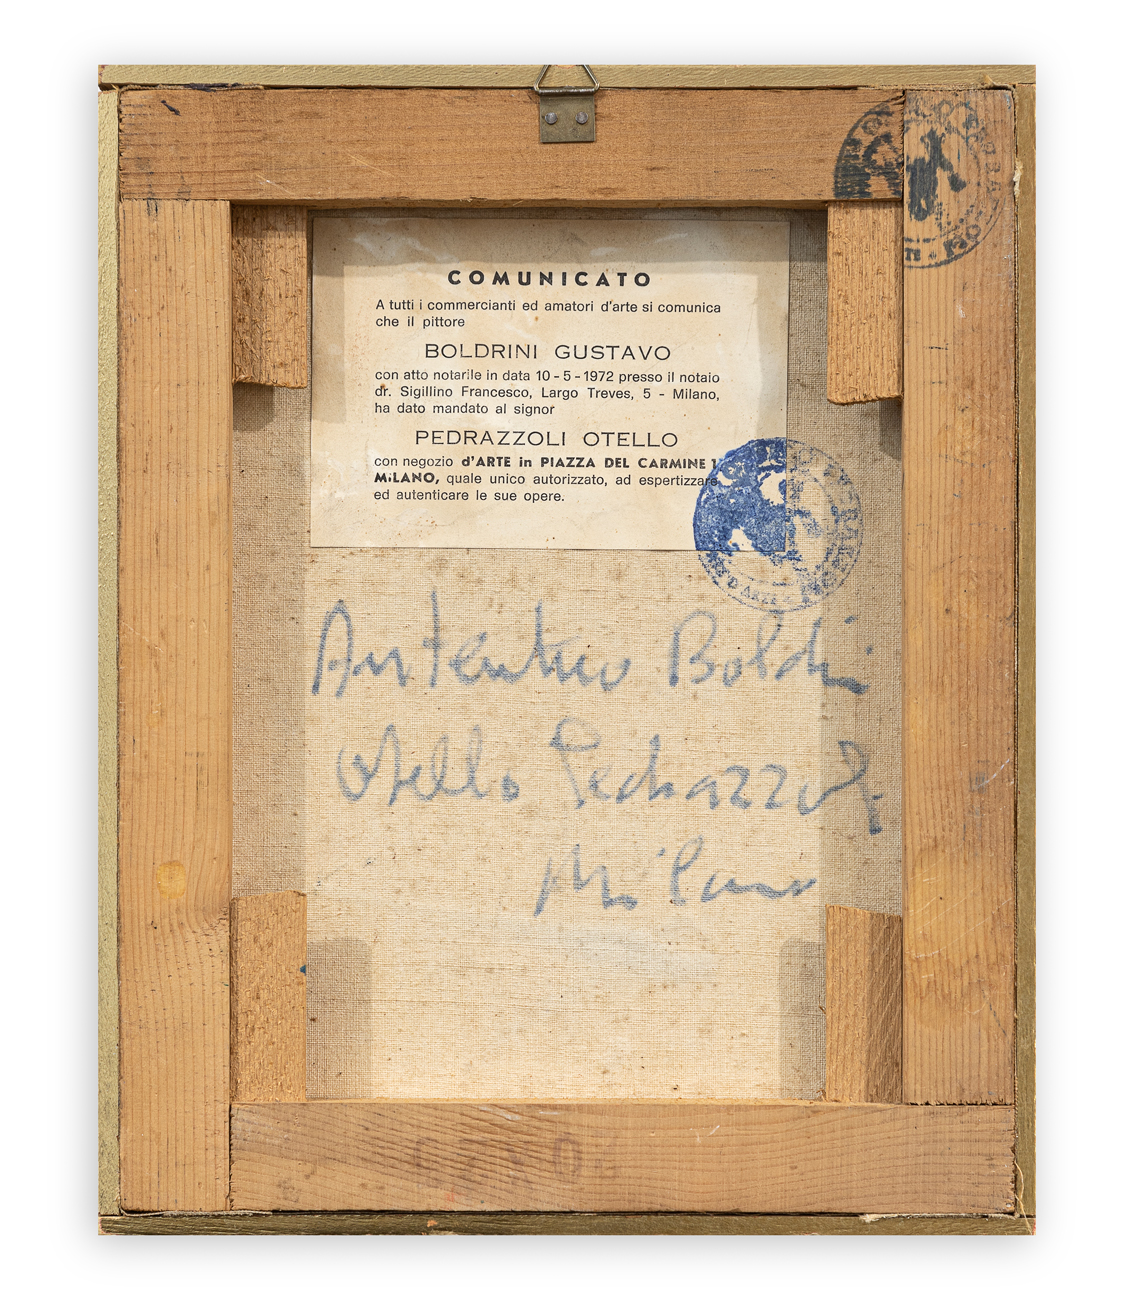 COMUNICATO
A tutti i commercianti ed amatori d'arte si comunica
che il pittore
BOLDRINI GUSTAVO
con atto notarile in data 10-5-1972 presso il notaio
dr. Sigillino Francesco, Largo Treves, 5 - Milano,
ha dato mandato al signor
PEDRAZZOLI OTELLO
con negozio d'ARTE in PIAZZA DEL CARMINE 1
MILANO, quale unico autorizzato, ad espertizzare
ed autenticare le sue opere.
D'ARTE
Autentico Boldrini
Otello Pedrazzoli
Milano